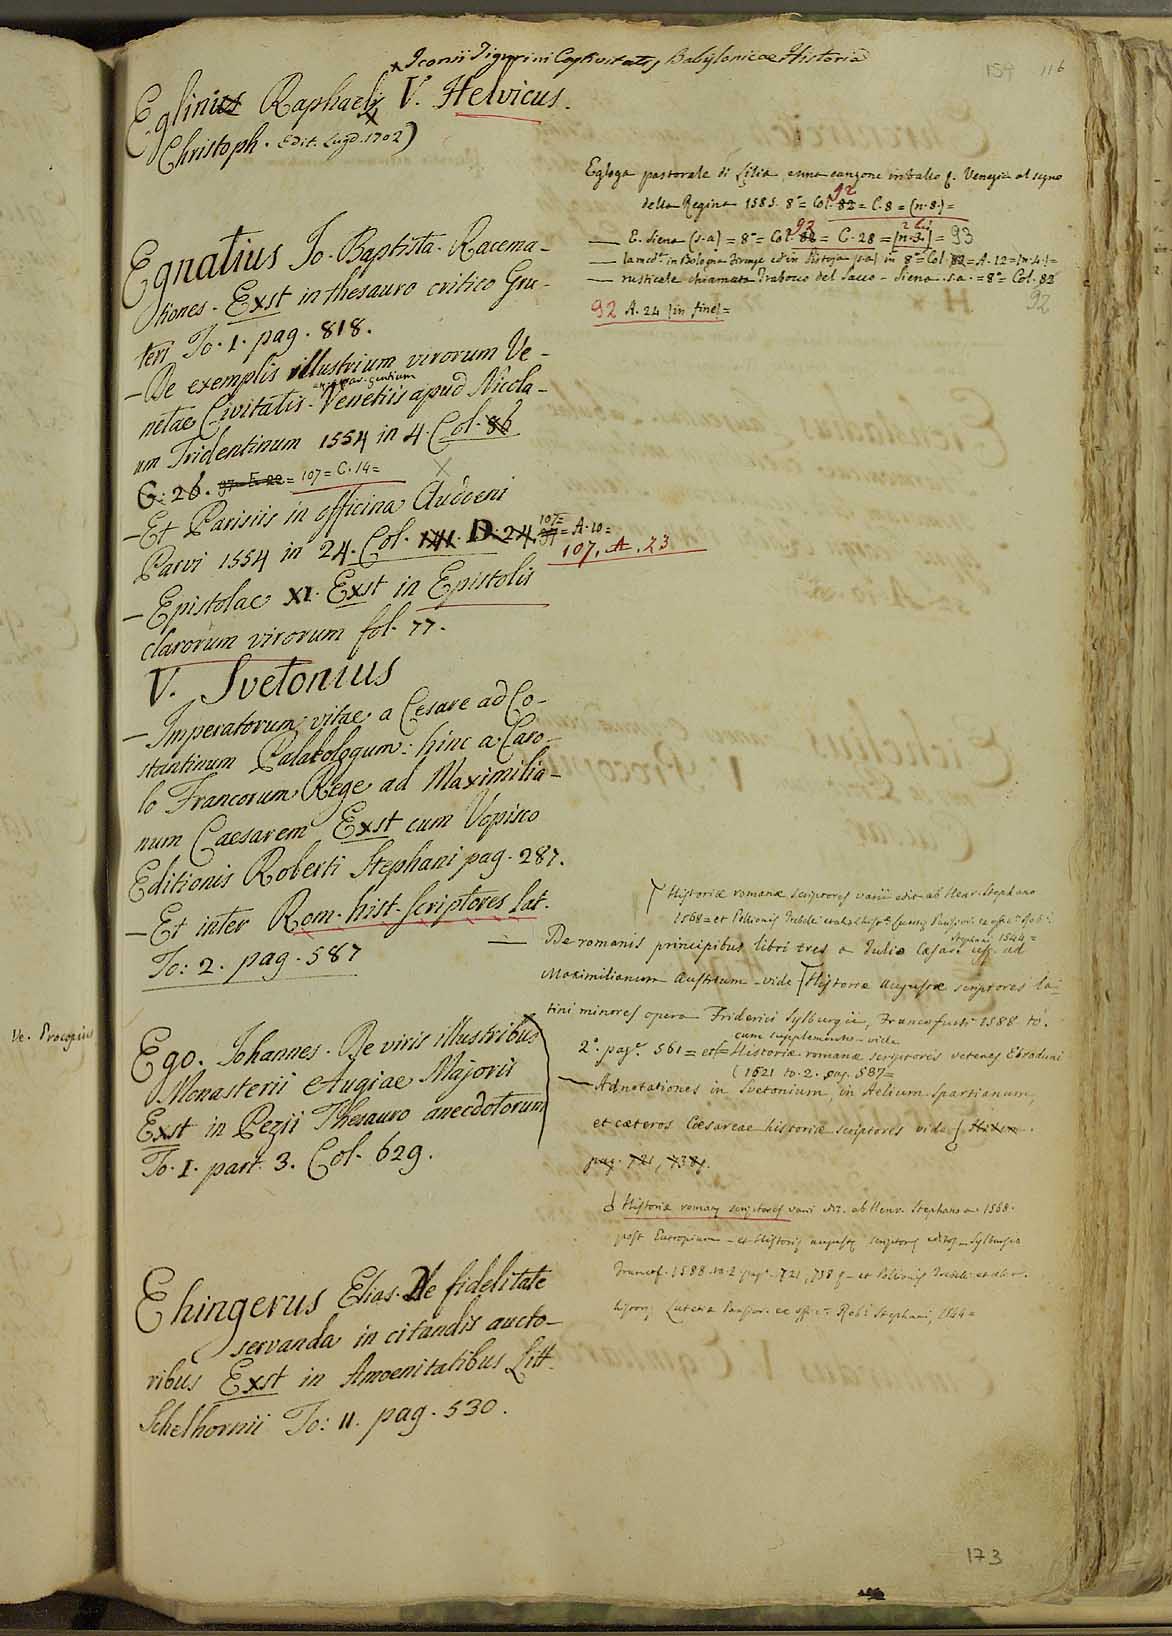 Iconii Tigurini Captivitatis Babylonicae Historia
154 116
Eglinus Raphael V. Helvicus.
Christoph. Edit. Lugd. 1702)
Egnatius Jo. Baptista. Racema-
tiones. Exst in thesauro critico Gru-
teri To. 1. pag. 818.
— De exemplis illustrium virorum Ve-
netae Civitatis. Venetiis apud Nicola-
um Tridentinum 1554 in 4. Col. 86
G: 26. 97=E.22= 107=C.14=
— Et Parisiis in officina Audoeni
Parvi 1554 in 24. Col. 141. D. 24. 107= A.10=
107. A. 23
— Epistolae XI. Exst in Epistolis
clarorum virorum fol. 77.
V. Svetonius
— Imperatorum vitae a Cesare ad Co-
stantinum Palaeologum: hinc a Caro-
lo Francorum Rege ad Maximilia-
num Caesarem Exst cum Vopisco
Editionis Roberti Stephani pag. 287.
— Et inter Rom. hist. scriptores lat.
To: 2. pag. 587
Ego. Johannes. De viris illustribus
Monasterii Augiae Majoris
Exst in Pezii Thesauro anecdotorum
To. I. part. 3. Col. 629.
Ehingerus Elias. De fidelitate
servanda in citandis aucto-
ribus Exst in Amoenitatibus Litt.
Schelhornii To: 11. pag. 530.
Egloga pastorale di Lilia, e una canzone in ballo f. Venezia al segno
della Regina 1585. 8°= Col. 82 92 = C.8 = (n.8.)=
— E. Siena (s.a) = 8°= Col. 82 93 = C.28 = (n.3.) = 93
— la med.ª in Bologna Firenze ed in Pistoja (s.a) in 8°= Col. 82 = A.12=(n.4.)=
— rusticale chiamata Trabocco del Sacco - Siena. s.a. = 8°= Col. 82
92 A. 24 (in fine)= 92
Historiae romanae scriptores varii edit. ab Henr. Stephano
1568= et Pollionis Trebelli
Stephani 1544=
— De romanis principibus libri tres a Julio Caesare usq. ad
Maximilianum Austrium - vide Historiae Augustae scriptores la-
tini minores opera Friderici Sylburgii, Francofurti 1588 to.
cum supplemento - vide
2°. pag.ª 561= et Historiae romanae scriptores veteres Ebroduni
(1621 to. 2. pag. 587=
— Adnotationes in Svetonium, in Aelium Spartianum,
et caeteros Caesareae historiae scriptores vide
pag. 721,
Historiae romanae scriptores varii ab Henr. Stephano 1568.
post Eutropium - et Historiae augustae scriptores Sylburgii
Francof. 1588. to. 2. pag. 721, et Pollionis Trebelli
Lutetiae Rob. Stephani, 1544=
Ve. Procopius
173